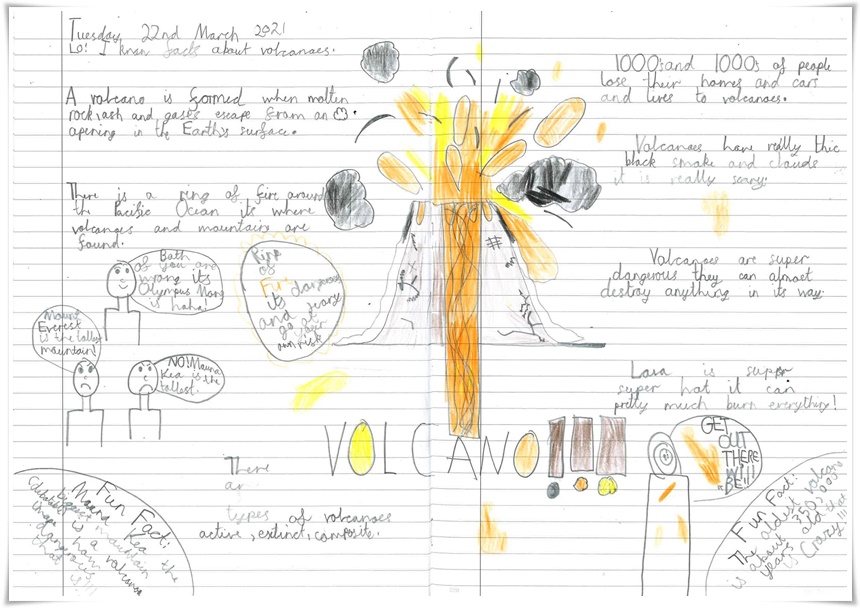 Tuesday 22nd March 2021
LO! I know facts about volcanoes.
A volcano is formed when molten
rock, ash and gases escape from an
opening in the Earth's surface.
There is a ring of fire around
the Pacific Ocean its where
volcanoes and mountains are
found.
Both
of you are
wrong its
Olympus Mons
is haha!
Mount
Everest
is the tallest
mountain!
NO! Mauna
Kea is the
tallest.
Ring
of
Fire
its dangerous
and
go at
your
own risk
VOLCANO!!!
There
ar
types of volcanoes
active, extinct, composite.
Fun Fact:
Mauna Kea the
biggest mountain
is a volcano
imagine how
dangerous
that is!!!
1000s and 1000s of people
lose their homes and cars
and lives to volcanoes.
Volcanoes have really thic
black smoke and clouds
it is really scary.
Volcanoes are super
dangerous they can almost
destroy anything in its way
Lava is super
super hot it can
pretty much burn everything!
GET
OUT
THERE
WILL
BE!!!
Fun Fact:
The oldest volcano
is about 350,000
years old that
is Crazy!!!